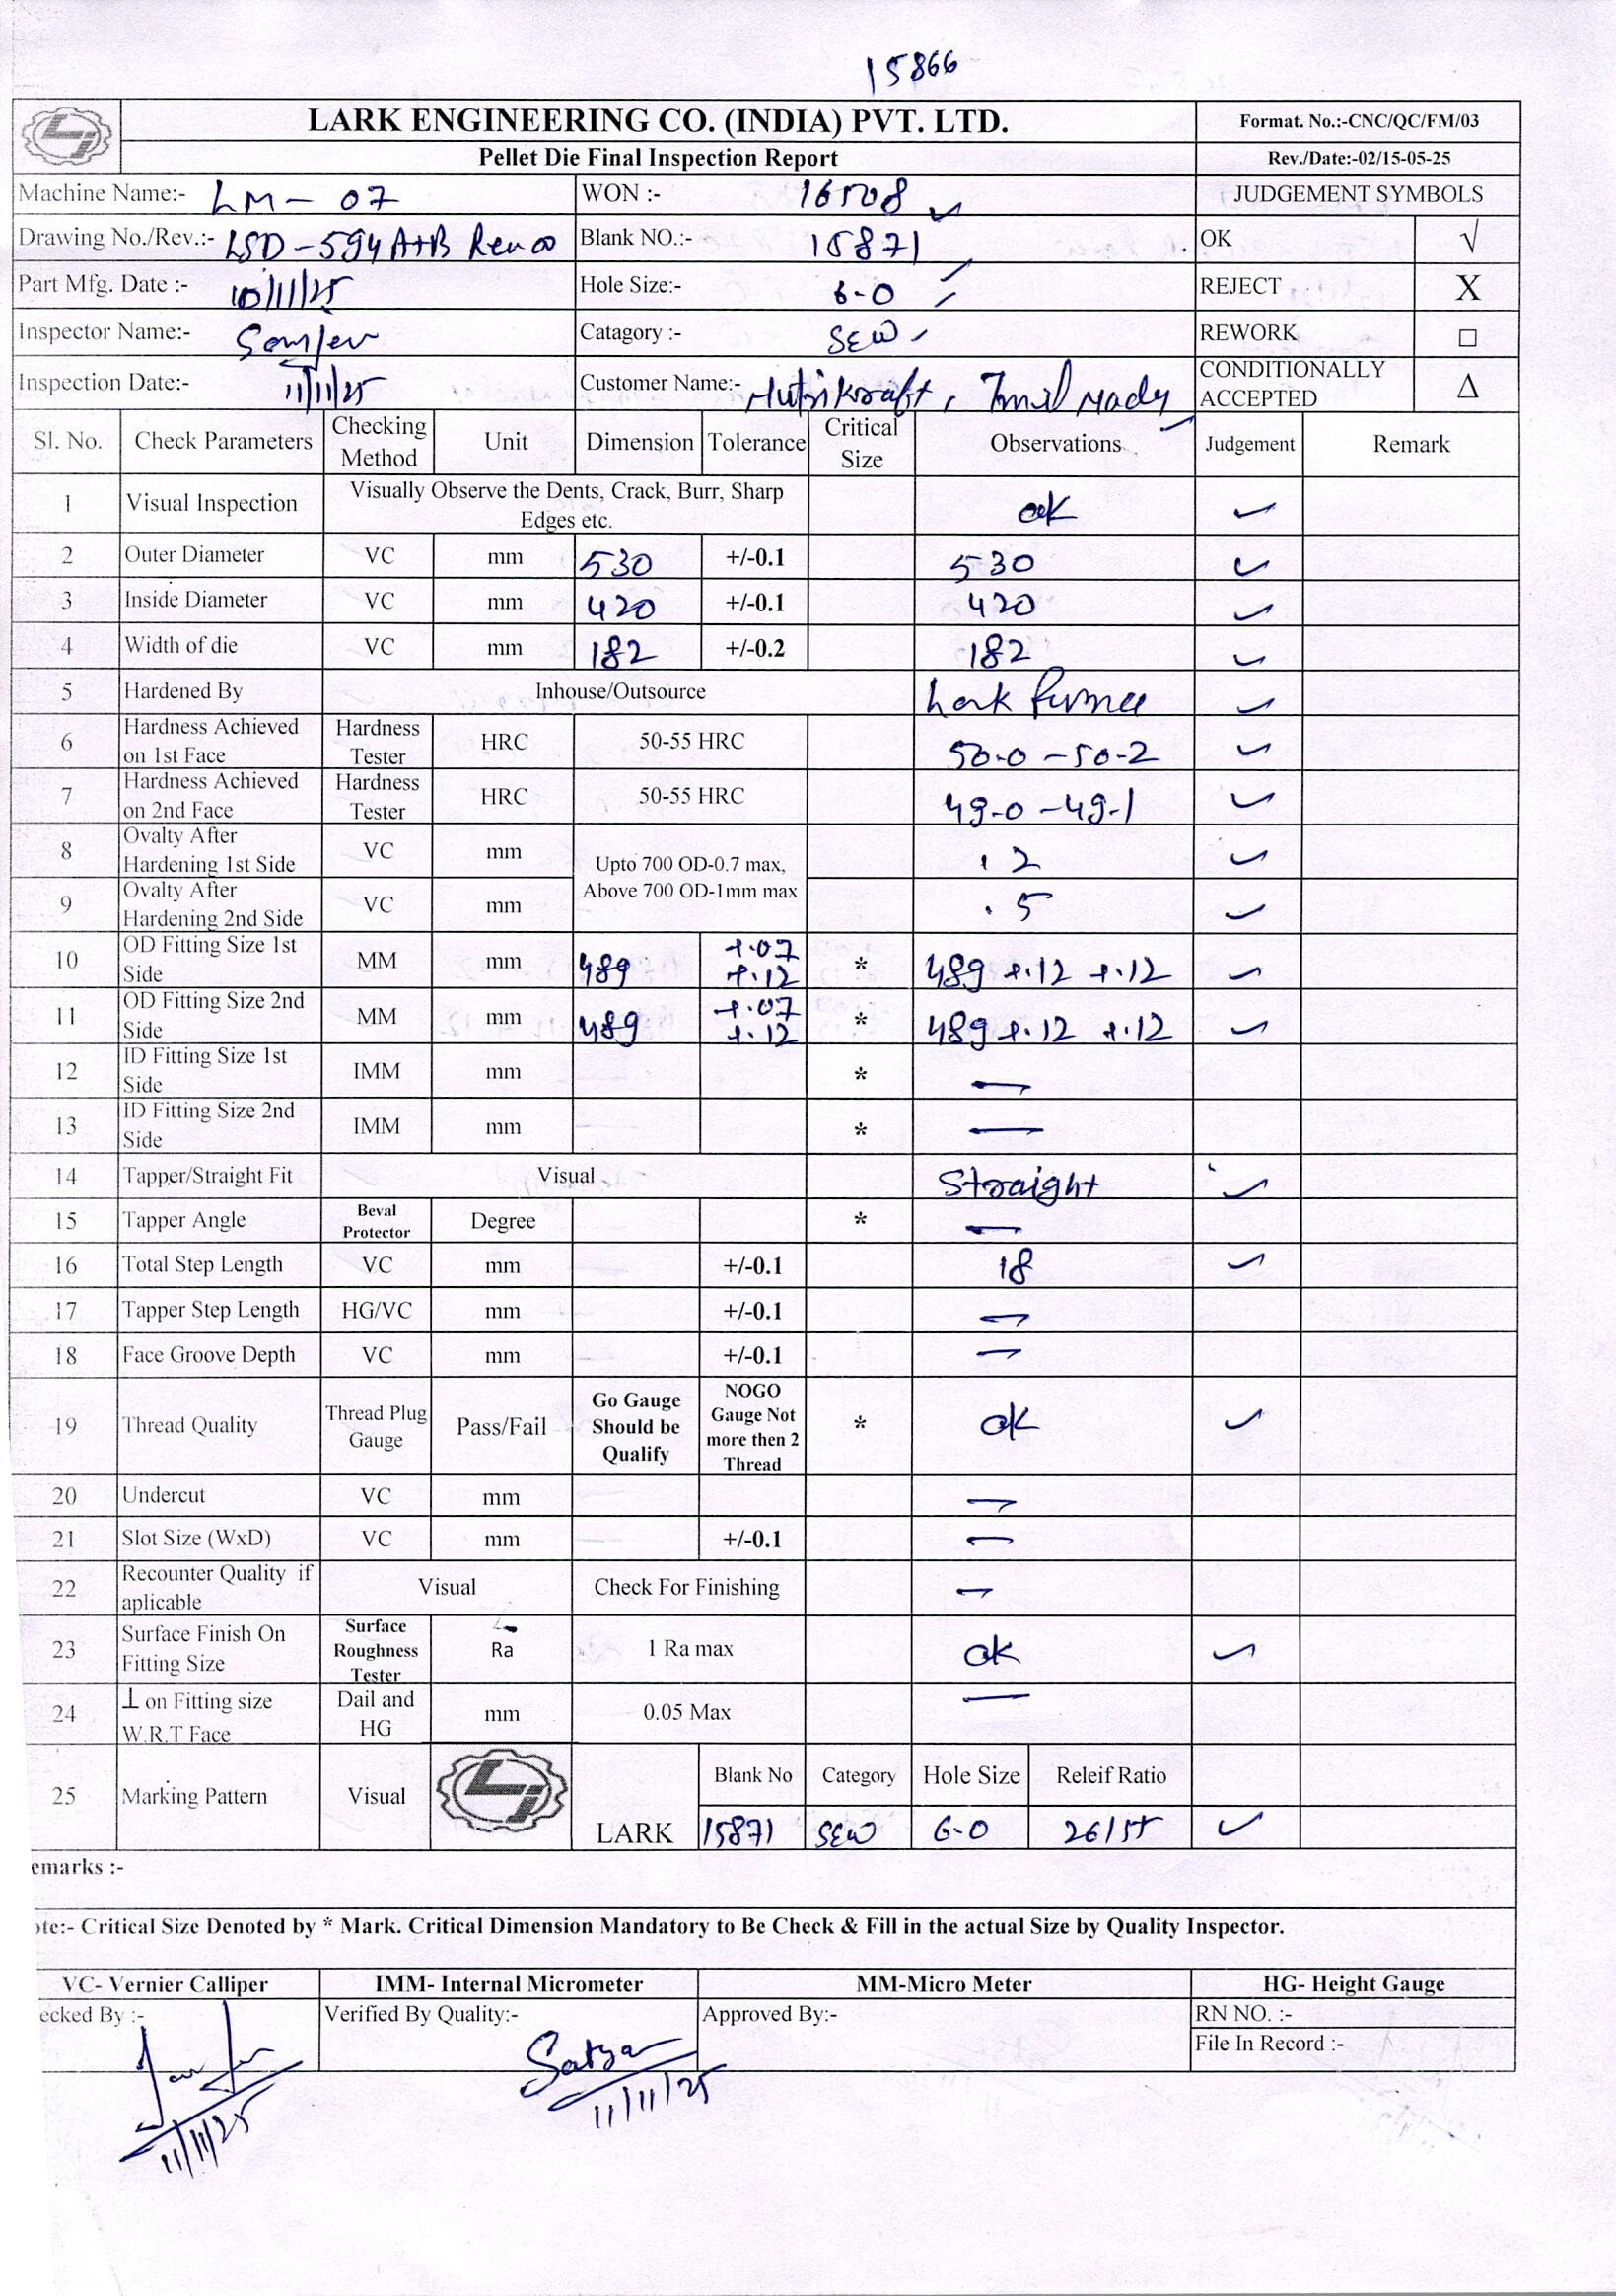 15866
LARK ENGINEERING CO. (INDIA) PVT. LTD.
Format. No.:-CNC/QC/FM/03
Pellet Die Final Inspection Report
Rev./Date:-02/15-05-25
Machine Name:- LM- 07 WON :- 16508 JUDGEMENT SYMBOLS
Drawing No./Rev.:- LSD-594 A+B Rev 00 Blank NO.:- 15871 OK √
Part Mfg. Date :- 10/11/25 Hole Size:- 6-0 REJECT X
Inspector Name:- Catagory :- SEW REWORK □
Inspection Date:- 11/11/25 Customer Name:- Nutrikraft, Tamil Nadu CONDITIONALLY ACCEPTED Δ
Sl. No. Check Parameters Checking Method Unit Dimension Tolerance Critical Size Observations Judgement Remark
1 Visual Inspection Visually Observe the Dents, Crack, Burr, Sharp Edges etc. ok ✓
2 Outer Diameter VC mm 530 +/-0.1 530 ✓
3 Inside Diameter VC mm 420 +/-0.1 420 ✓
4 Width of die VC mm 182 +/-0.2 182 ✓
5 Hardened By Inhouse/Outsource Lark furnace ✓
6 Hardness Achieved on 1st Face Hardness Tester HRC 50-55 HRC 50-0 - 50-2 ✓
7 Hardness Achieved on 2nd Face Hardness Tester HRC 50-55 HRC 49-0 - 49-1 ✓
8 Ovalty After Hardening 1st Side VC mm Upto 700 OD-0.7 max, Above 700 OD-1mm max .2 ✓
9 Ovalty After Hardening 2nd Side VC mm .5 ✓
10 OD Fitting Size 1st Side MM mm 489 +.07 +.12 * 489 +.12 +.12 ✓
11 OD Fitting Size 2nd Side MM mm 489 +.07 +.12 * 489 +.12 +.12 ✓
12 ID Fitting Size 1st Side IMM mm * —
13 ID Fitting Size 2nd Side IMM mm * —
14 Tapper/Straight Fit Visual Straight ✓
15 Tapper Angle Beval Protector Degree * —
16 Total Step Length VC mm +/-0.1 18 ✓
17 Tapper Step Length HG/VC mm +/-0.1 —
18 Face Groove Depth VC mm +/-0.1 —
19 Thread Quality Thread Plug Gauge Pass/Fail Go Gauge Should be Qualify NOGO Gauge Not more then 2 Thread * ok ✓
20 Undercut VC mm —
21 Slot Size (WxD) VC mm +/-0.1 —
22 Recounter Quality if aplicable Visual Check For Finishing —
23 Surface Finish On Fitting Size Surface Roughness Tester Ra 1 Ra max ok ✓
24 ⊥ on Fitting size W.R.T Face Dail and HG mm 0.05 Max —
25 Marking Pattern Visual LARK Blank No Category Hole Size Releif Ratio
15871 SEW 6-0 26/5+ ✓
emarks :-
ote:- Critical Size Denoted by * Mark. Critical Dimension Mandatory to Be Check & Fill in the actual Size by Quality Inspector.
VC- Vernier Calliper IMM- Internal Micrometer MM-Micro Meter HG- Height Gauge
ecked By :- Verified By Quality:- Approved By:- RN NO. :-
File In Record :-
Satya
11/11/25
11/11/25